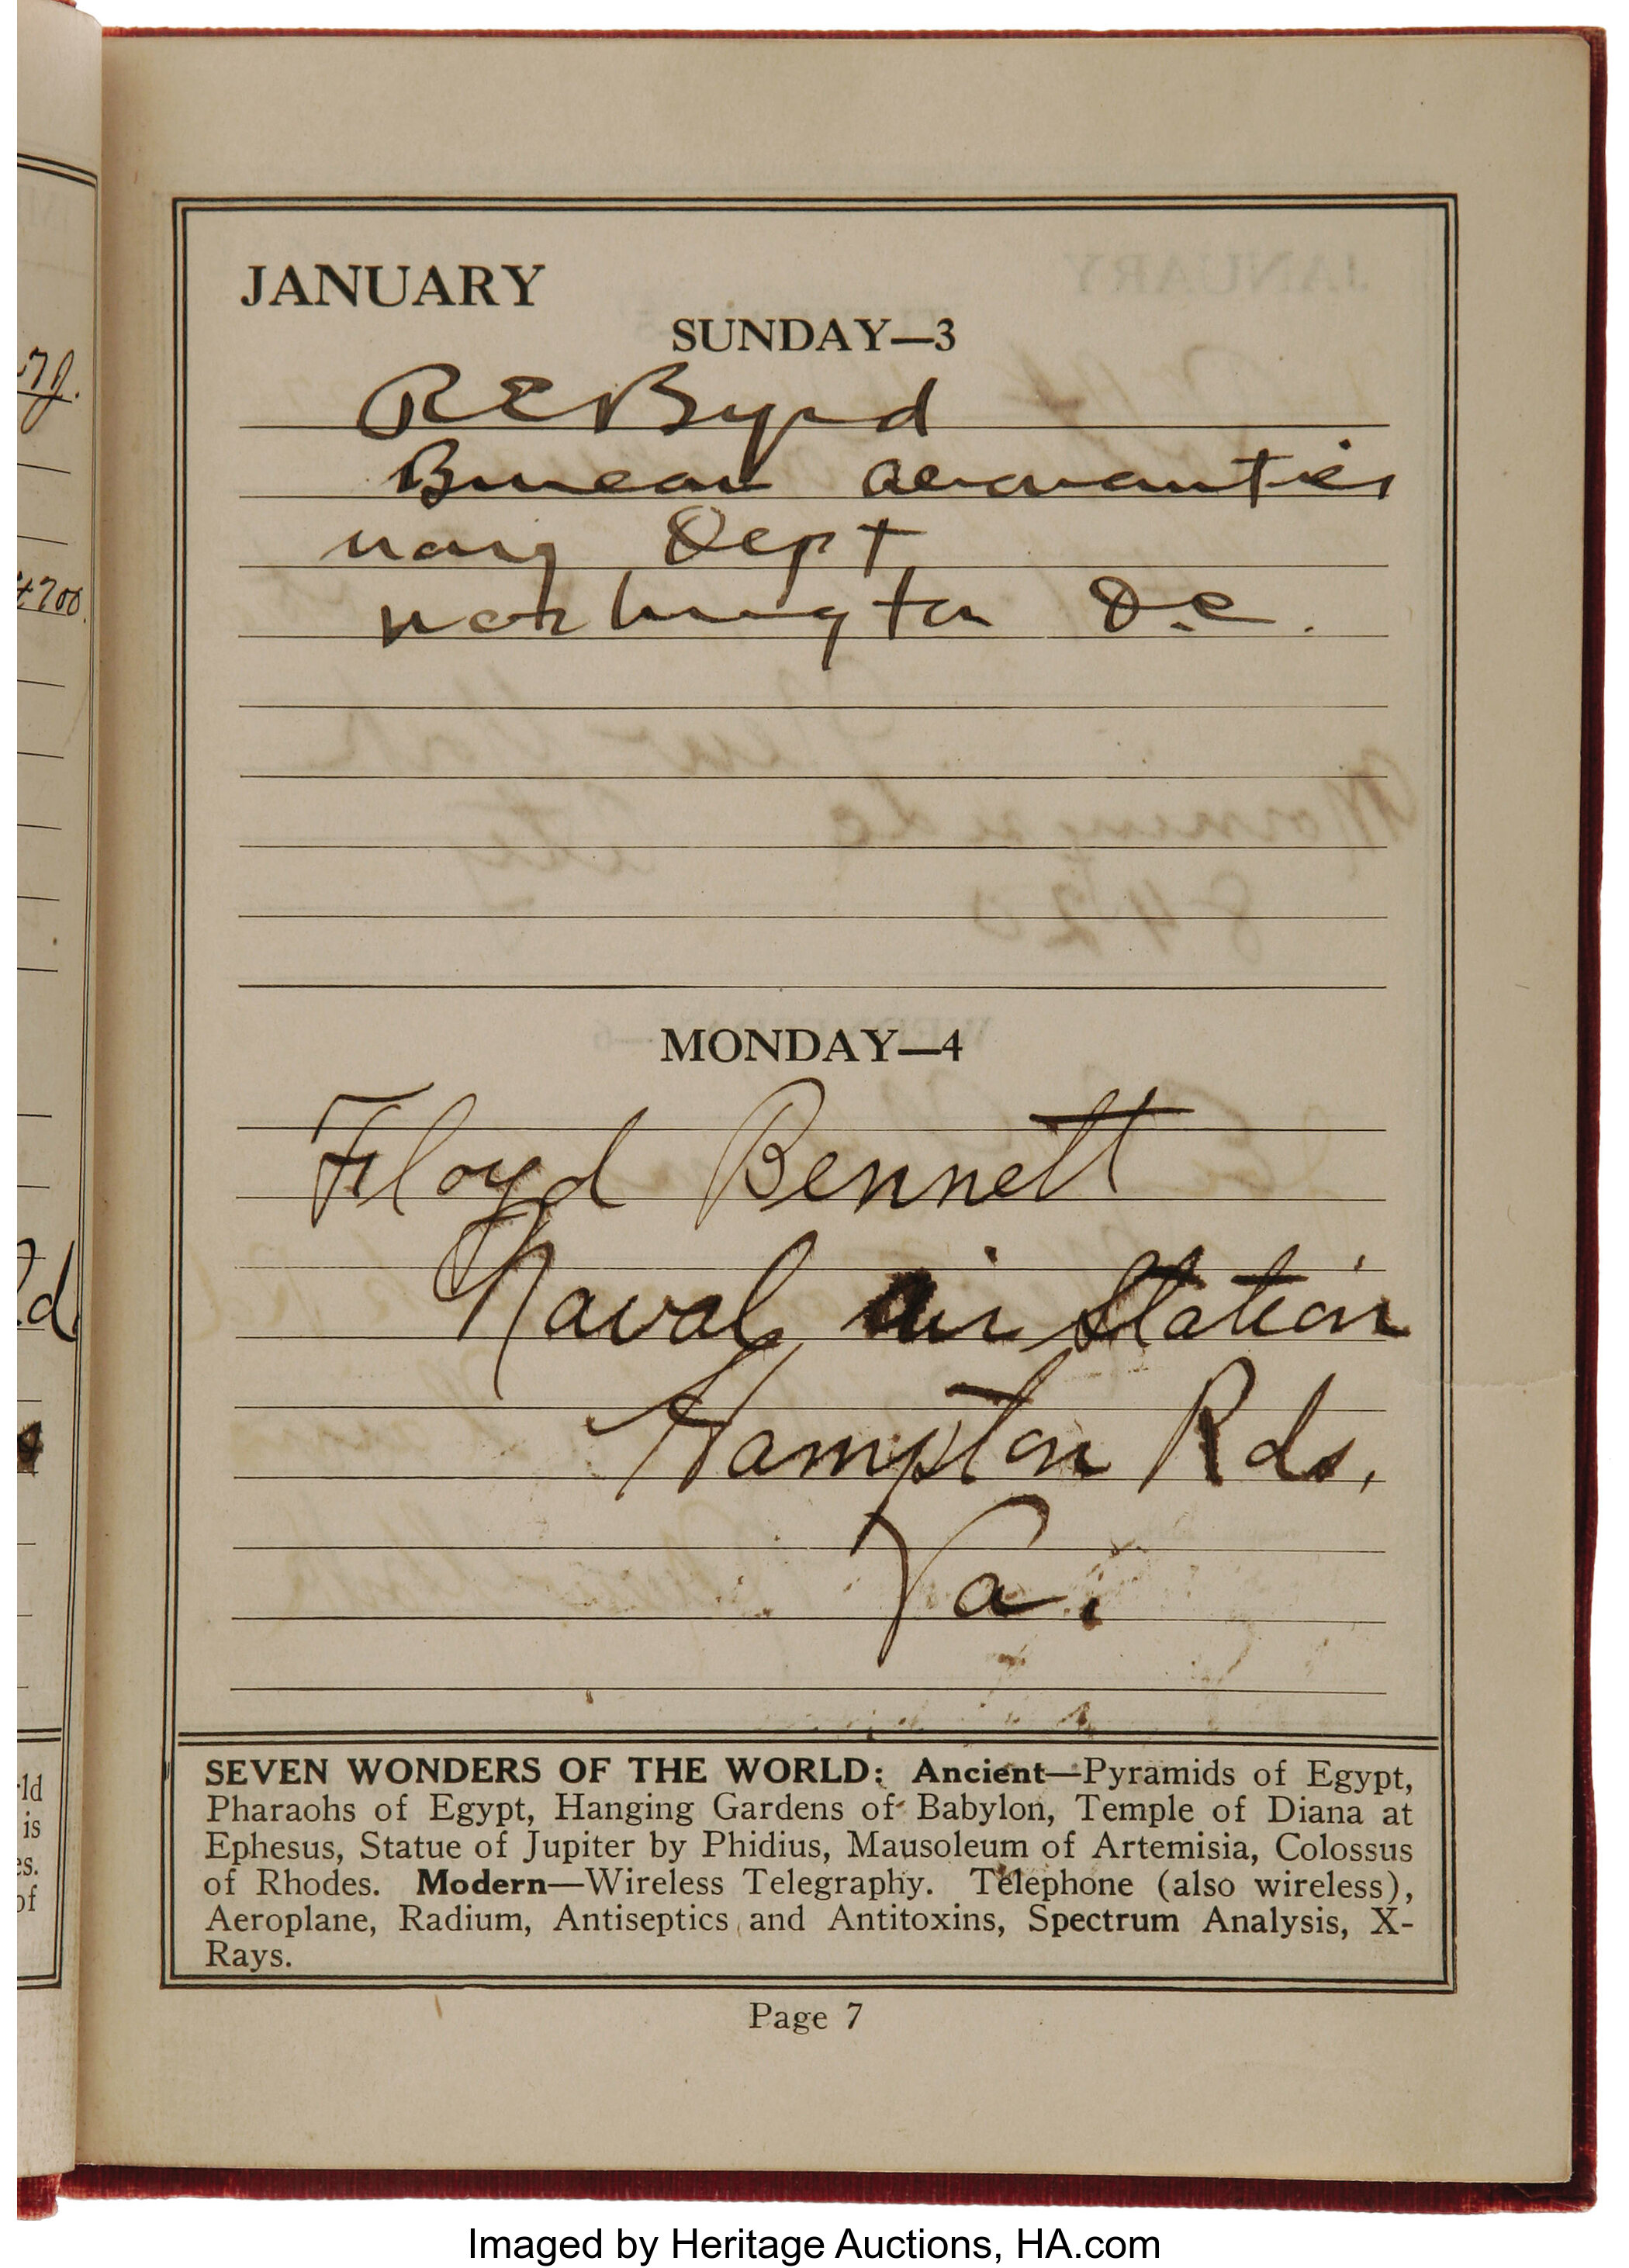 JANUARY
SUNDAY—3
R E Byrd
Bureau Aeronautics
Navy Dept
Washington D.C.
MONDAY—4
Floyd Bennett
Naval Air Station
Hampton Rds.
Va.
SEVEN WONDERS OF THE WORLD: Ancient—Pyramids of Egypt,
Pharaohs of Egypt, Hanging Gardens of Babylon, Temple of Diana at
Ephesus, Statue of Jupiter by Phidius, Mausoleum of Artemisia, Colossus
of Rhodes. Modern—Wireless Telegraphy. Telephone (also wireless),
Aeroplane, Radium, Antiseptics and Antitoxins, Spectrum Analysis, X-
Rays.
Page 7
Imaged by Heritage Auctions, HA.com